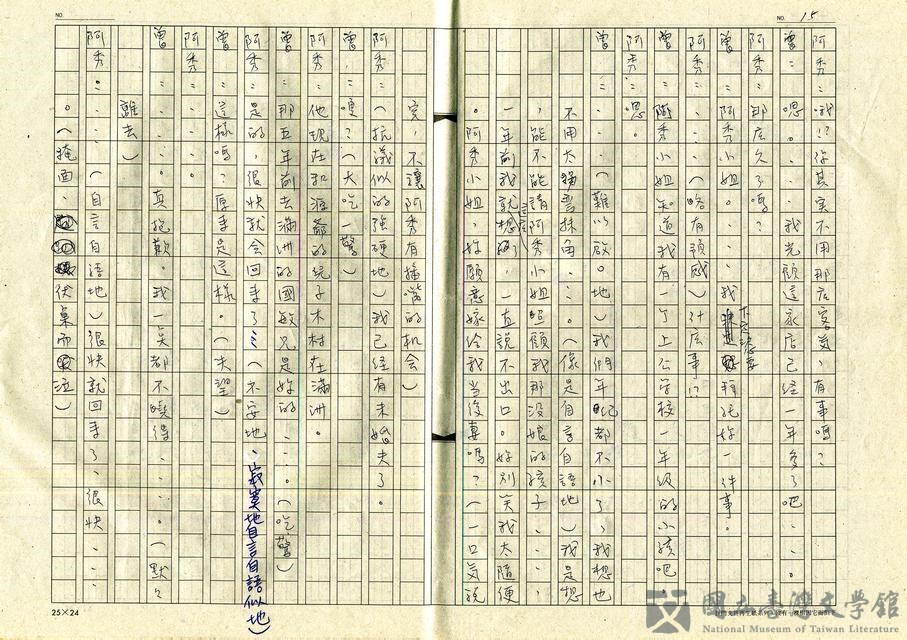 NO. 15
阿秀：哦!?你其实不用那么客気，有事嗎？
曾：嗯。我光顧這家店己经一年多了吧…。
阿秀：那么久了嗎？
曾：阿秀小姐…我下定決意要拜託妳一件事。
阿秀：（略有預感）什么事!?
曾：阿秀小姐知道我有一个上公学校一年级的小孩吧。
阿秀：嗯。
曾：…（難以啟口地）我們年紀都不小了，我想也
不用太拐彎抹角…。（像是自言自語地）我是想
，能不能請阿秀小姐照顧我那没娘的孩子…
一年前我就這么想，一直説不出口。妳別笑我太隨便
。阿秀小姐，妳願意嫁给我当後妻嗎？（一口気説
完，不讓阿秀有插嘴的机会）
阿秀：（抗議似的強硬地）我己经有未婚夫了。
曾：嗄？（大吃一驚）
阿秀：他現在和涯爺的児子木村在滿洲。
曾：那五年前去滿洲的國敏兄是妳的…。（吃驚）
阿秀：是的，很快就会回来了……（不安地、寂寞地自言自語似地）
曾：這樣嗎，原来是這樣。（失望）
阿秀：…。
曾：真抱歉。我一矣都不曉得…。（默々
離去）
阿秀：…（自言自語地）很快就回来了、很快…
。（掩面、伏桌而泣）
NO.
25×24
國立臺灣文學館
National Museum of Taiwan Literature